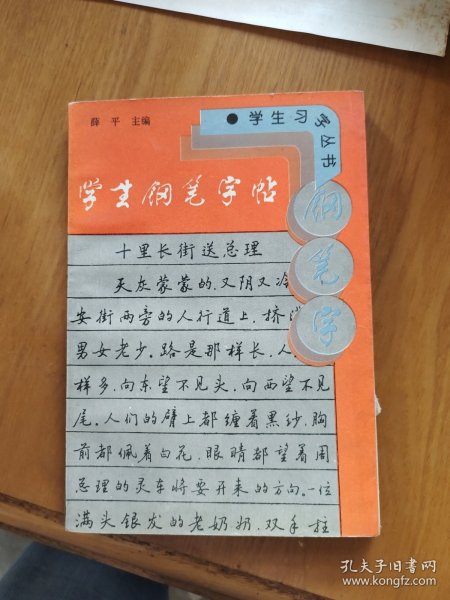 薛平 主编
●学生习字丛书
学生钢笔字帖
钢笔字
十里长街送总理
天灰蒙蒙的,又阴又冷
安街两旁的人行道上,挤满
男女老少。路是那样长,人
样多,向东望不见头,向西望不见
尾。人们的臂上都缠着黑纱,胸
前都佩着白花,眼睛都望着周
总理的灵车将要开来的方向。一位
满头银发的老奶奶,双手拄
孔夫子旧书网
www.kongfz.com